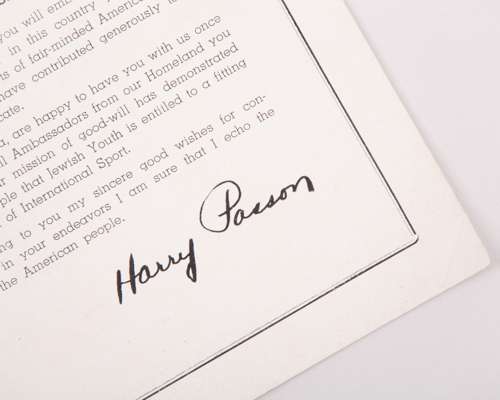 you will emb
in this country
ts of fair-minded America
have contributed generously
cate.
a, are happy to have you with us once
ll Ambassadors from our Homeland you
r mission of good-will has demonstrated
ple that Jewish Youth is entitled to a fitting
of International Sport.
ng to you my sincere good wishes for con-
in your endeavors I am sure that I echo the
the American people.
Harry Passon